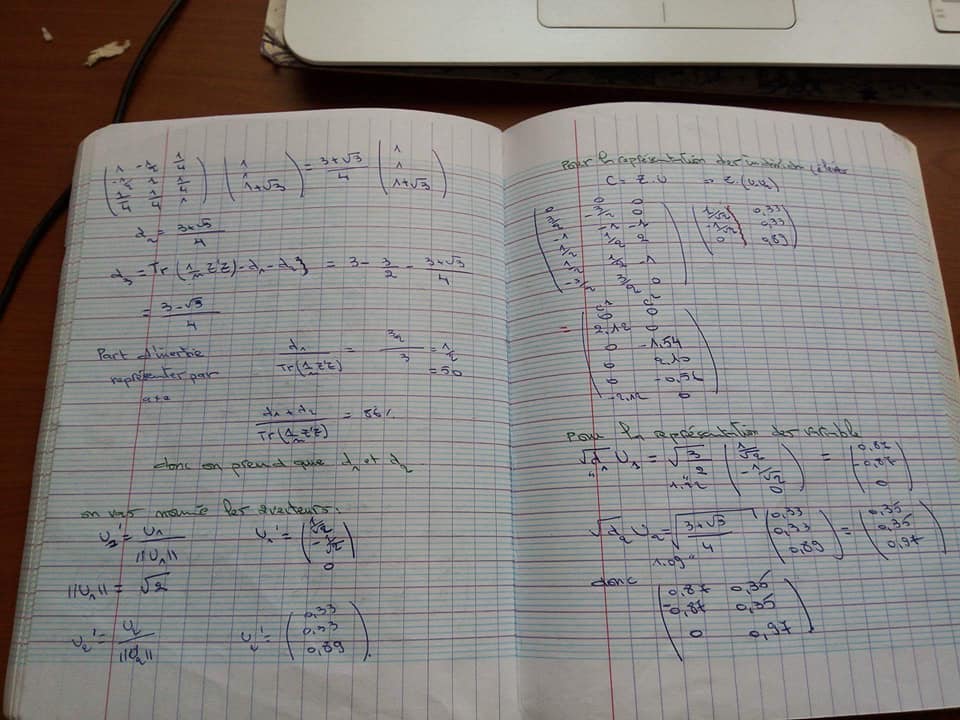 ( 1 -1/2 1/4 ; -1/2 1 1/4 ; 1/4 1/4 1 ) ( 1 ; 1 ; 1+√3 ) = 3+√3/4 ( 1 ; 1 ; 1+√3 )
d2 = 3+√3/4
d3 = Tr (1/n Z'Z) - d1 - d2 } = 3 - 3/2 - 3+√3/4
= 3-√3/4
Part d'inertie représenter par axe
d1/Tr(1/n Z'Z) = 3/2/3 = 1/2
= 50
d1 + d2/Tr(1/n Z'Z) = 86 %
donc on prend que d1 et d2
U1/||U1||
U1' = ( 1/√2 ; -1/√2 ; 0 )
||U1|| = √2
U2' = U2/||U2||
U2' = ( 0,33 ; 0,33 ; 0,89 )
Pour la représentation des
C = Z.U = Z.(U1 U2)
( 0 0 0 ; 3/2 -3/2 0 ; -1 -1 -1 ; 1/2 1/2 2 ; 1/2 1/2 -1 ; -3/2 3/2 0 ) ( 1/√2 0,33 ; -1/√2 0,33 ; 0 0,89 )
C1 C2
= ( 0 0 ; 2,12 0 ; 0 -1,54 ; 0 2,10 ; 0 -0,56 ; -2,12 0 )
Pour la représentation des variable
√d1 U1 = √3/2 ( 1/√2 ; -1/√2 ; 0 ) = ( 0,87 ; -0,87 ; 0 )
1.22
√d2 U2 = √3+√3/4 ( 0,33 ; 0,33 ; 0,89 ) = ( 0,35 ; 0,35 ; 0,97 )
1.09
donc ( 0,87 0,35 ; -0,87 0,35 ; 0 0,97 )